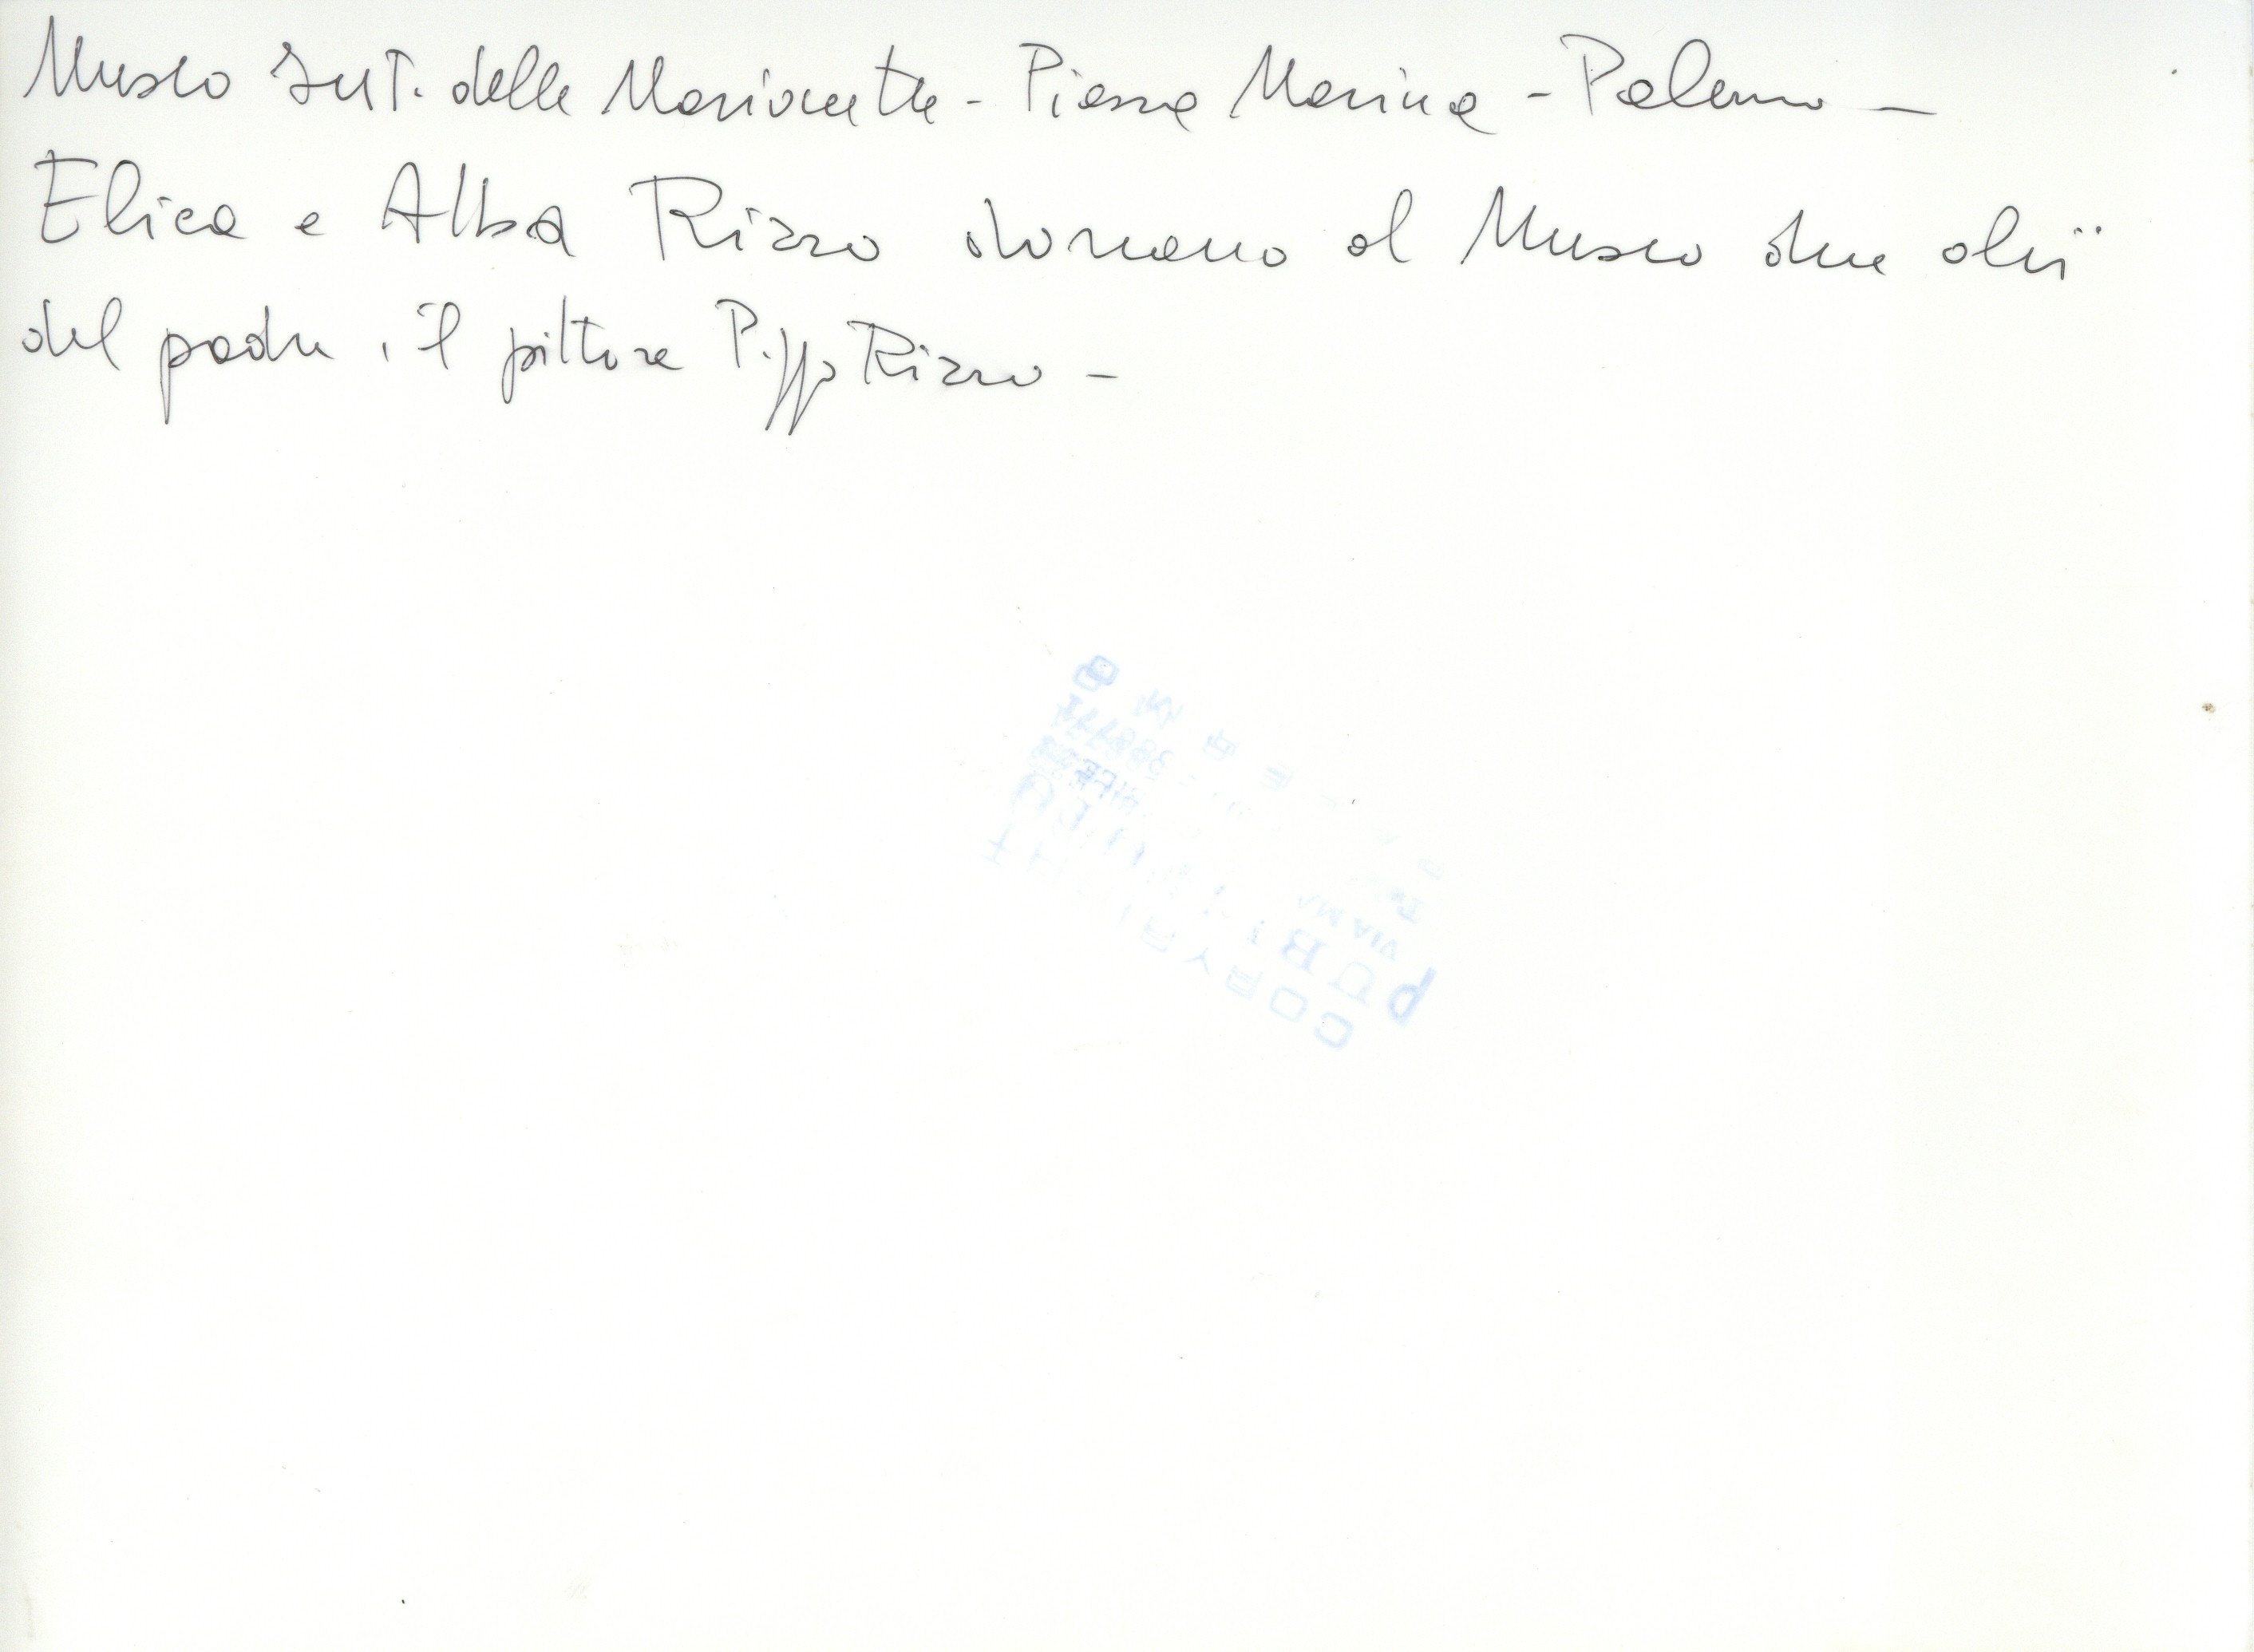 Museo Int. delle Marionette - Piazza Marina - Palermo -
Elica e Alba Rizzo donano al Museo due olii
del padre, il pittore Pippo Rizzo -
COPYRIGHT
PUBLIFOTO